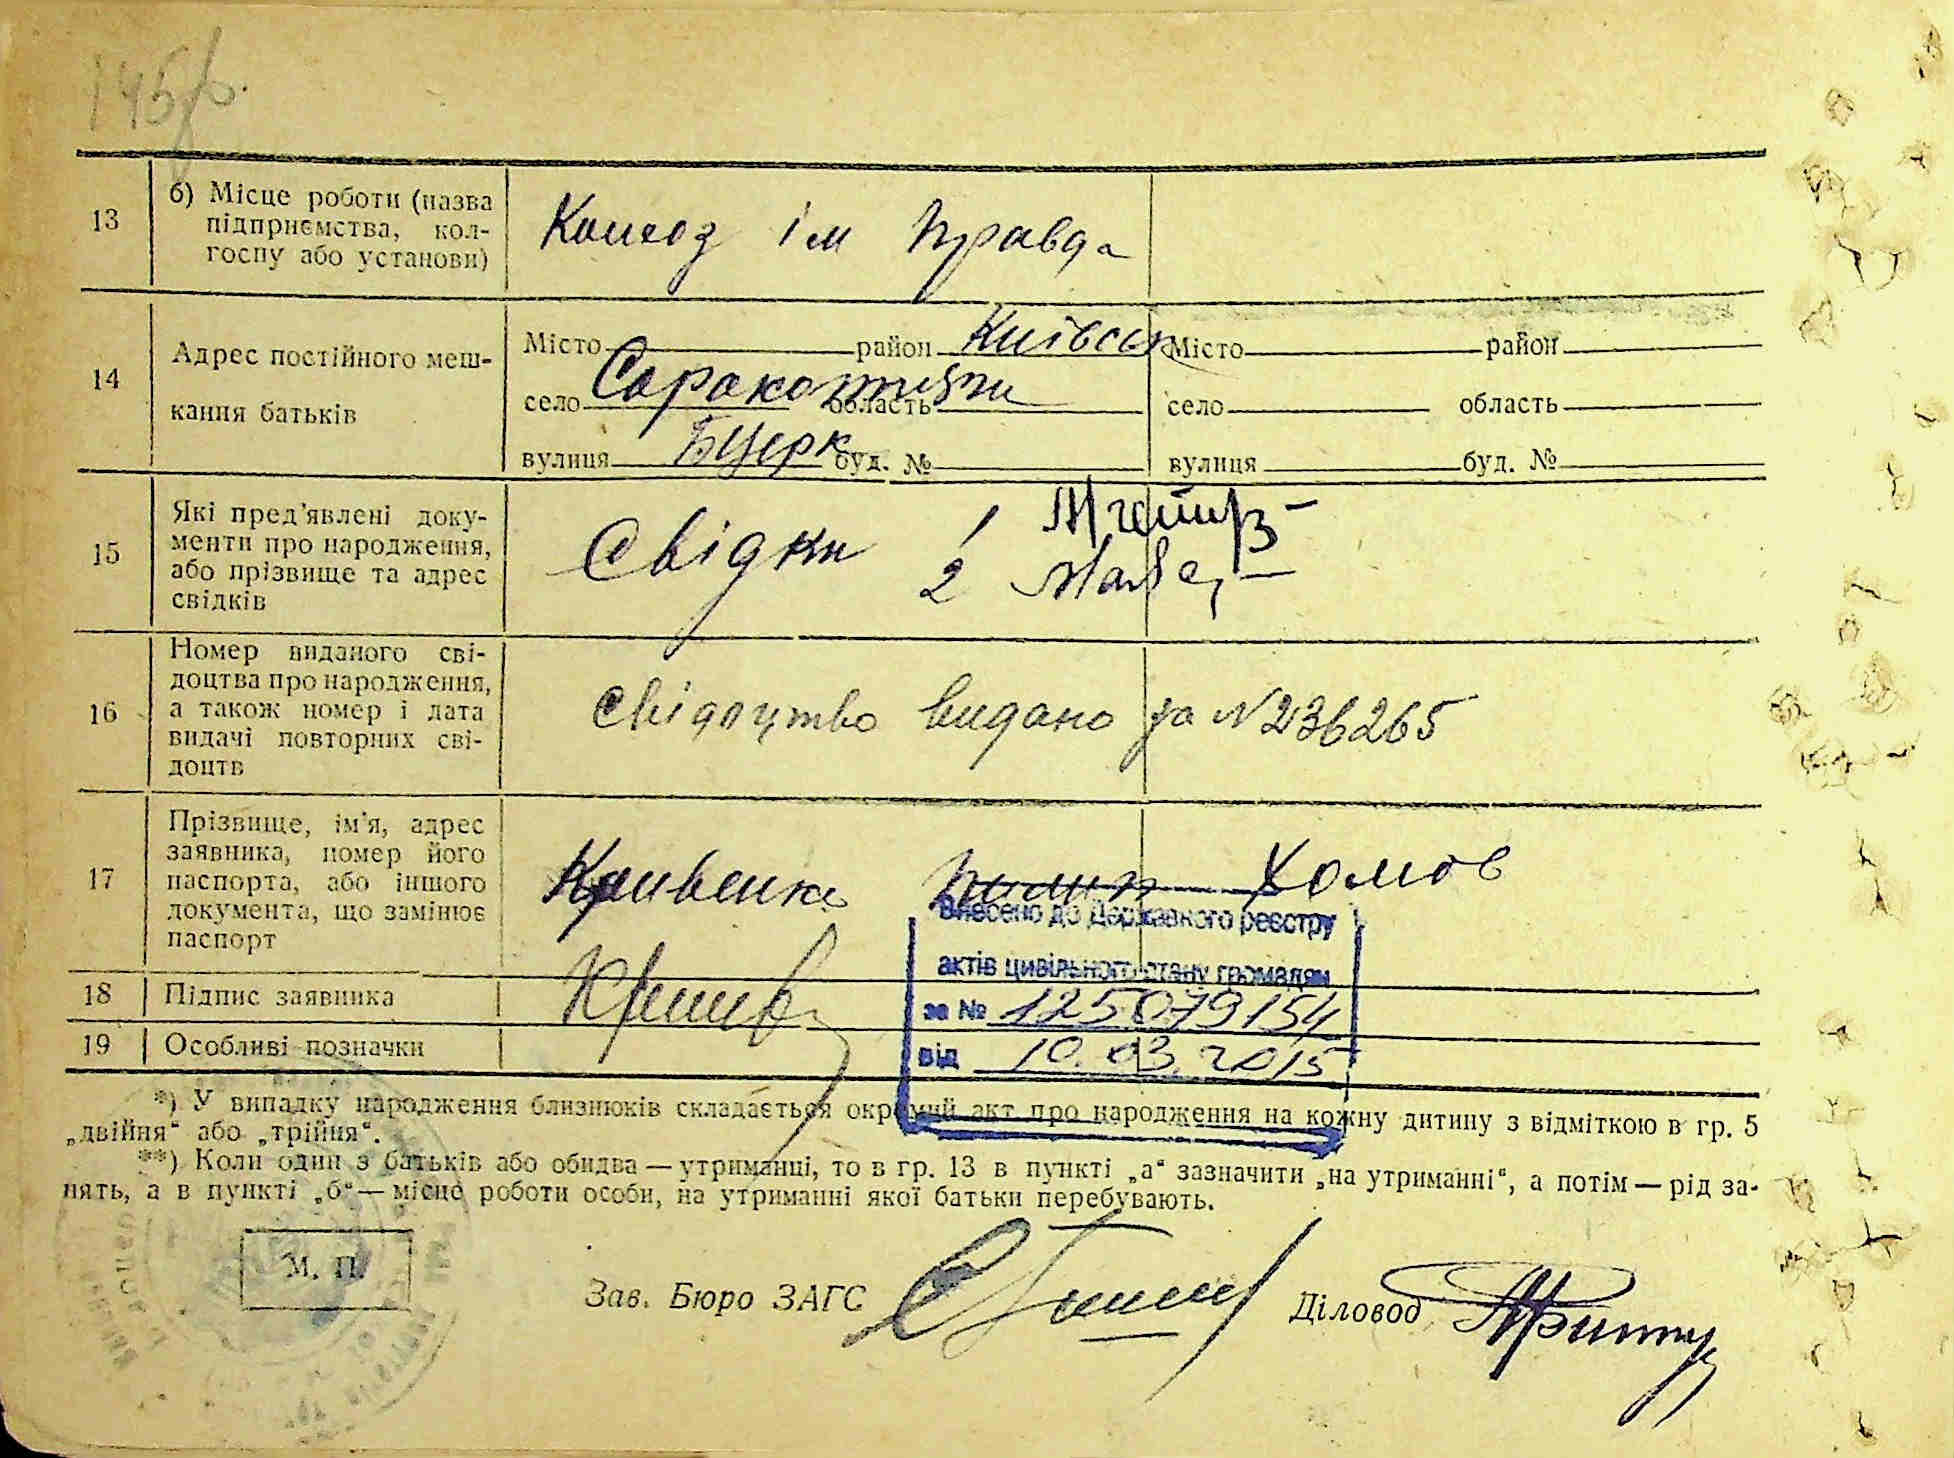 145
13
б) Місце роботи (назва
підприємства, кол-
госпу або установи)
Колгоз ім Правда
14
Адрес постійного меш-
кання батьків
Місто район Київськ
село область
вулиця буд. №
Місто район
село область
вулиця буд. №
15
Які пред'явлені доку-
менти про народження,
або прізвище та адрес
свідків
Свідки 1
2
16
Номер виданого сві-
доцтва про народження,
а також номер і дата
видачі повторних сві-
доцтв
Свідоцтво видано за №236265
17
Прізвище, ім'я, адрес
заявника, номер його
паспорта, або іншого
документа, що замінює
паспорт
Кривенко Хомов
Внесено до Державного реєстру
актів цивільного стану громадян
за № 125079154
від 10.03.2015
18 Підпис заявника
19 Особливі позначки
*) У випадку народження близнюків складається окремий акт про народження на кожну дитину з відміткою в гр. 5
„двійня“ або „трійня“.
**) Коли один з батьків або обидва — утриманці, то в гр. 13 в пункті „а“ зазначити „на утриманні“, а потім — рід за-
нять, а в пункті „б“ — місце роботи особи, на утриманні якої батьки перебувають.
М. П.
Зав. Бюро ЗАГС
Діловод